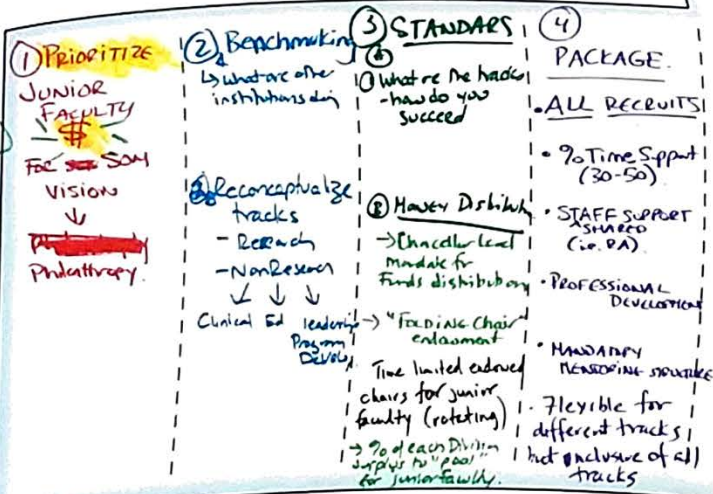 ① PRIORITIZE
JUNIOR
FACULTY
$
FOR SOM
VISION
↓
Philanthropy.
② Benchmarking
↳ what are other
institutions doing
Reconceptualize
tracks
- Research
- NonResearch
↓ ↓ ↓
Clinical Ed leadership
Program
Develo
③ STANDARS
① What are the tracks
- how do you
succeed
② Money Distributn
→ Chancellor level
mandate for
Funds distribution
→ "FOLDING Chair"
endowment
Time limited endowed
chairs for junior
faculty (rotating)
→ % of each Division
surplus to "pool"
for junior faculty.
④
PACKAGE.
• ALL RECRUITS
• % Time Support
(30-50)
• STAFF SUPPORT
SHARED
(i.e. RA)
• PROFESSIONAL
DEVELOPMENT
• MANDATORY
MENTORING STRUCTURE
• Flexible for
different tracks
but inclusive of all
tracks